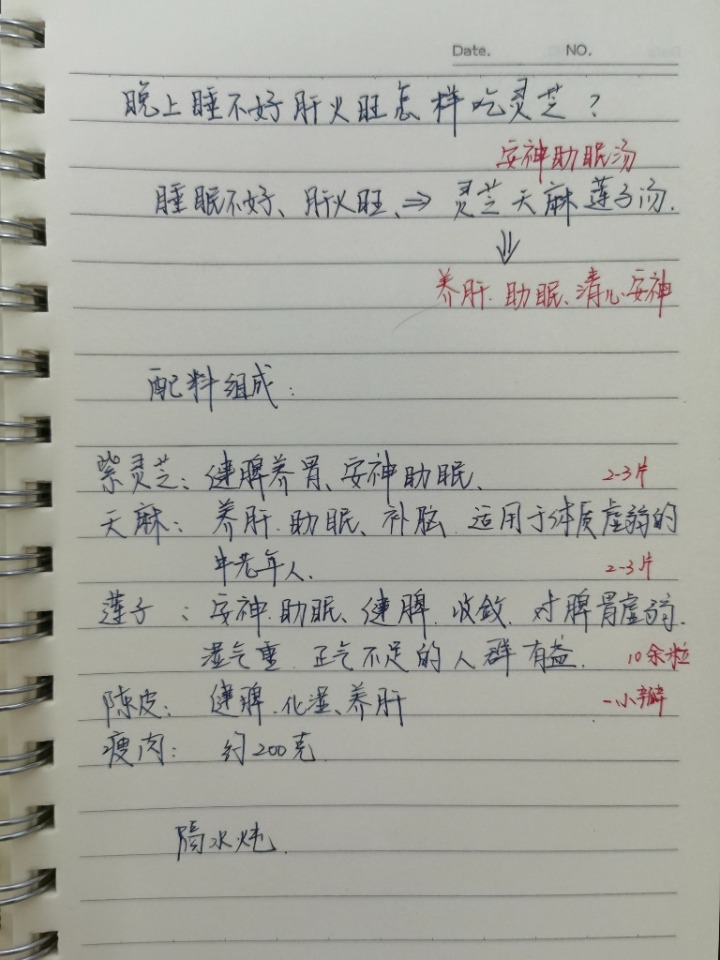 Date. NO.
晚上睡不好肝火旺怎样吃灵芝？
安神助眠汤
睡眠不好、肝火旺、⇒ 灵芝天麻莲子汤.
⇓
养肝.助眠、清心安神
配料组成：
紫灵芝：健脾养胃、安神助眠、 2-3片
天麻：养肝.助眠、补脑.适用于体质虚弱的
中老年人. 2-3片
莲子：安神.助眠、健脾.收敛.对脾胃虚弱.
湿气重.正气不足的人群有益. 10余粒
陈皮：健脾.化湿、养肝 一小瓣
瘦肉：约200克.
隔水炖.